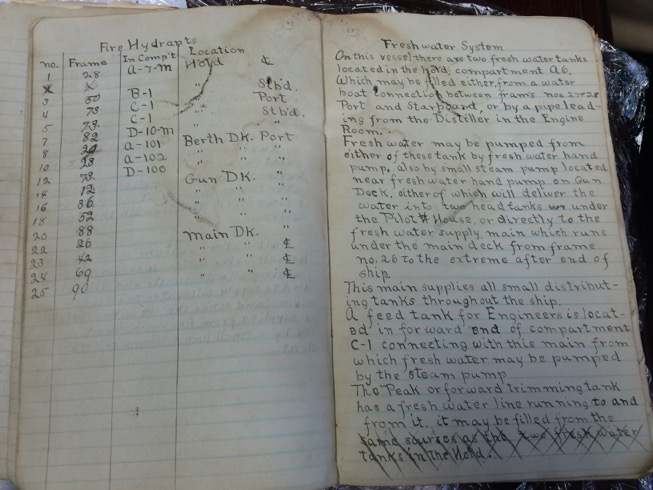 Fire Hydrants
no. Frame In Comp't Location
1 28 A-7-M Hold ℄
X X
3 50 B-1 " Stb'd.
4 73 C-1 " Port
5 73 C-1 " Stb'd.
7 82 D-10-M
8 A-101 Berth DK. Port
10 23 A-102 " "
12 73 D-100 " "
14 12 Gun DK. "
16 36 " "
18 52 " "
20 88 " "
22 26 Main DK. "
23 42 " ℄
24 69 " ℄
25 90 " ℄
Freshwater System
On this vessel there are two fresh water tanks
located in the hold, compartment A6,
Which may be filled either from a water
boat connection between frams nos 27&28
Port and Starboard, or by a pipe lead-
ing from the Distiller in the Engine
Room.
Fresh water may be pumped from
either of these tank by fresh water hand
pump, also by small steam pump located
near fresh water hand pump on Gun
Deck, either of which will deliver the
water into two head tanks under
the Pilot House, or directly to the
fresh water supply main which runs
under the main deck from frame
no. 26 to the extreme after end of
ship.
This main supplies all small distribut-
ing tanks throughout the ship.
A feed tank for Engineers is locat-
ed in forward end of compartment
C-1 connecting with this main from
which fresh water may be pumped
by the steam pump
The Peak or forward trimming tank
has a fresh water line running to and
from it, it may be filled from the
same sources as the two fresh water
tanks in the Hold.